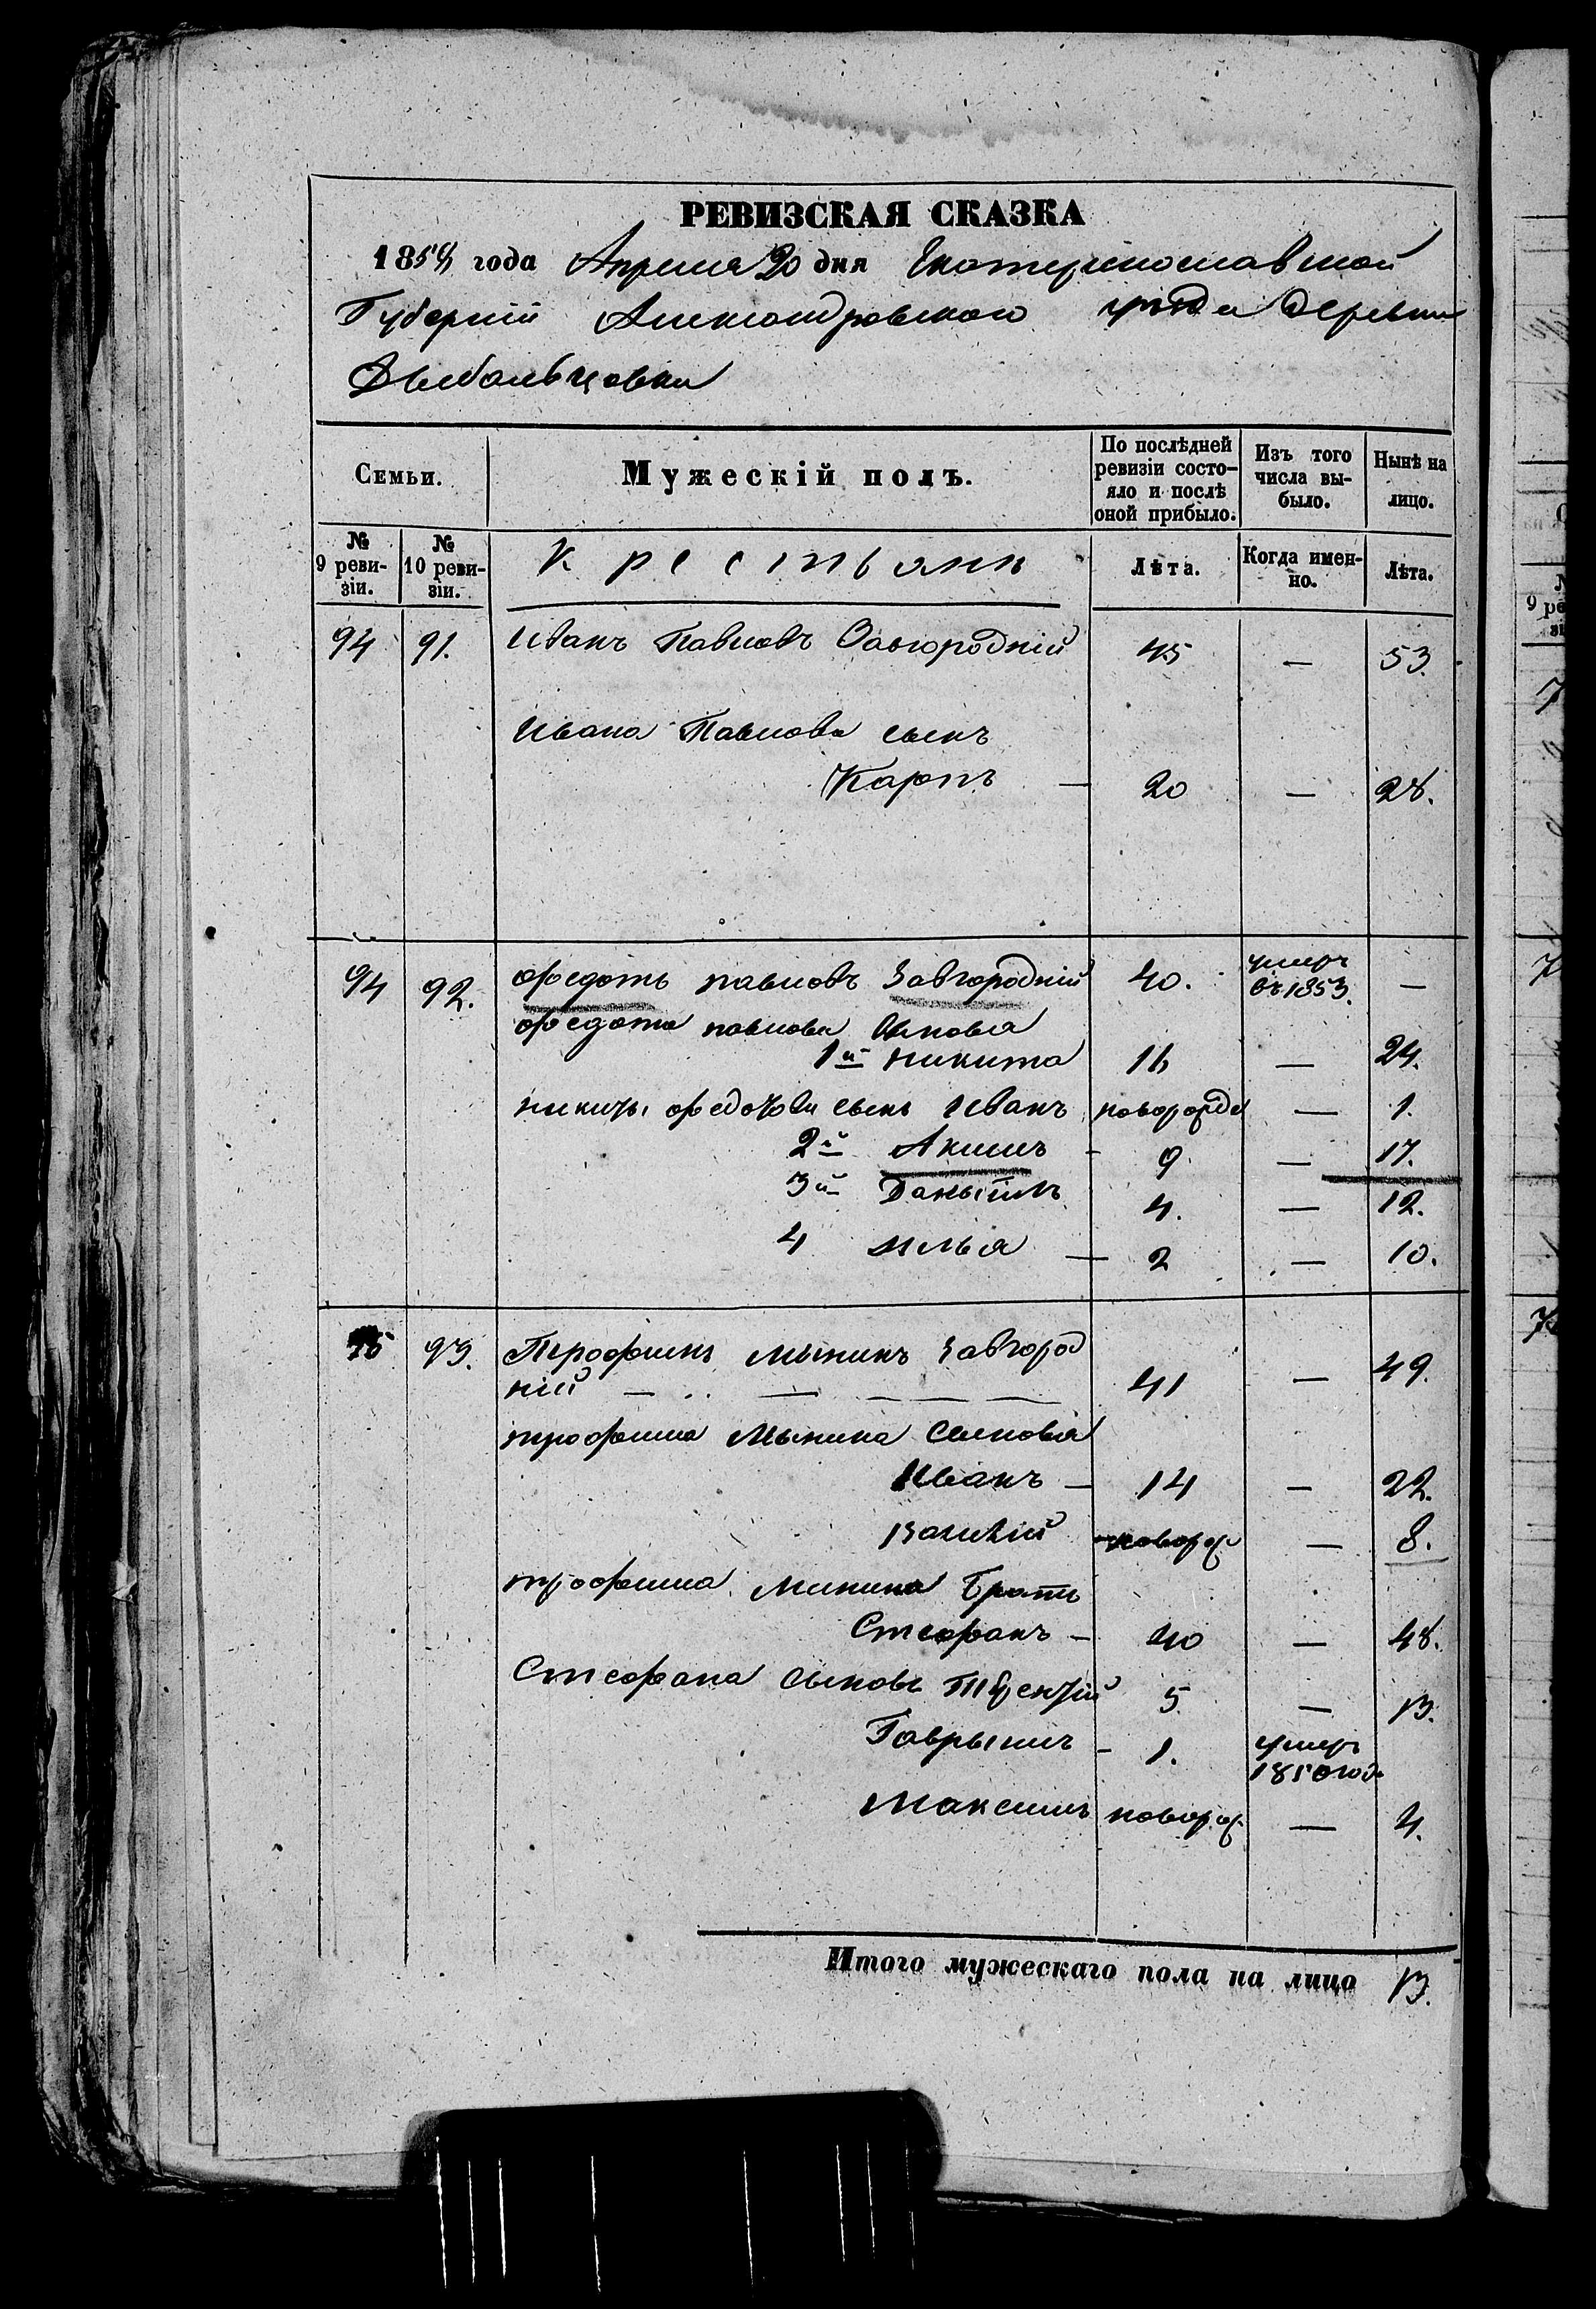 РЕВИЗСКАЯ СКАЗКА
1858 года Апреля 20 дня Екатеринославской
Губерніи Александровского уѣзда деревни
Семьи.
Мужескій полъ.
По послѣдней ревизіи состо-яло и послѣ оной прибыло.
Изъ того числа вы-было.
Нынѣ на лицо.
№ 9 реви-зіи.
№ 10 реви-зіи.
Крестьяни
Лѣта.
Когда имен-но.
Лѣта.
94 91. Иванъ Павловъ Завгородній 45 — 53.
Ивана Павлова сынъ
Карпъ — 20 — 28.
94 92. федотъ павловъ Завгородній 40. умеръ въ 1853. —
федота павлова сыновья
1й никита 16 — 24.
никиты федотова сынъ Иванъ новорожде — 1.
2й Акимъ - 9 — 17.
3й Даныїлъ 4. — 12.
4 илья — 2 — 10.
93. Трофимъ мынинъ Завгород
ній — — — 41 — 49.
трофима Мынина сыновья
Иванъ — 14 — 22.
новорож — 8.
трофима Минина братъ
Стефанъ — 40 — 48.
Стефана сыновь 5. — 13.
Гаврыилъ — 1. умеръ 1850 год.
Максимъ новорож. — 4.
Итого мужескаго пола на лицо 13.